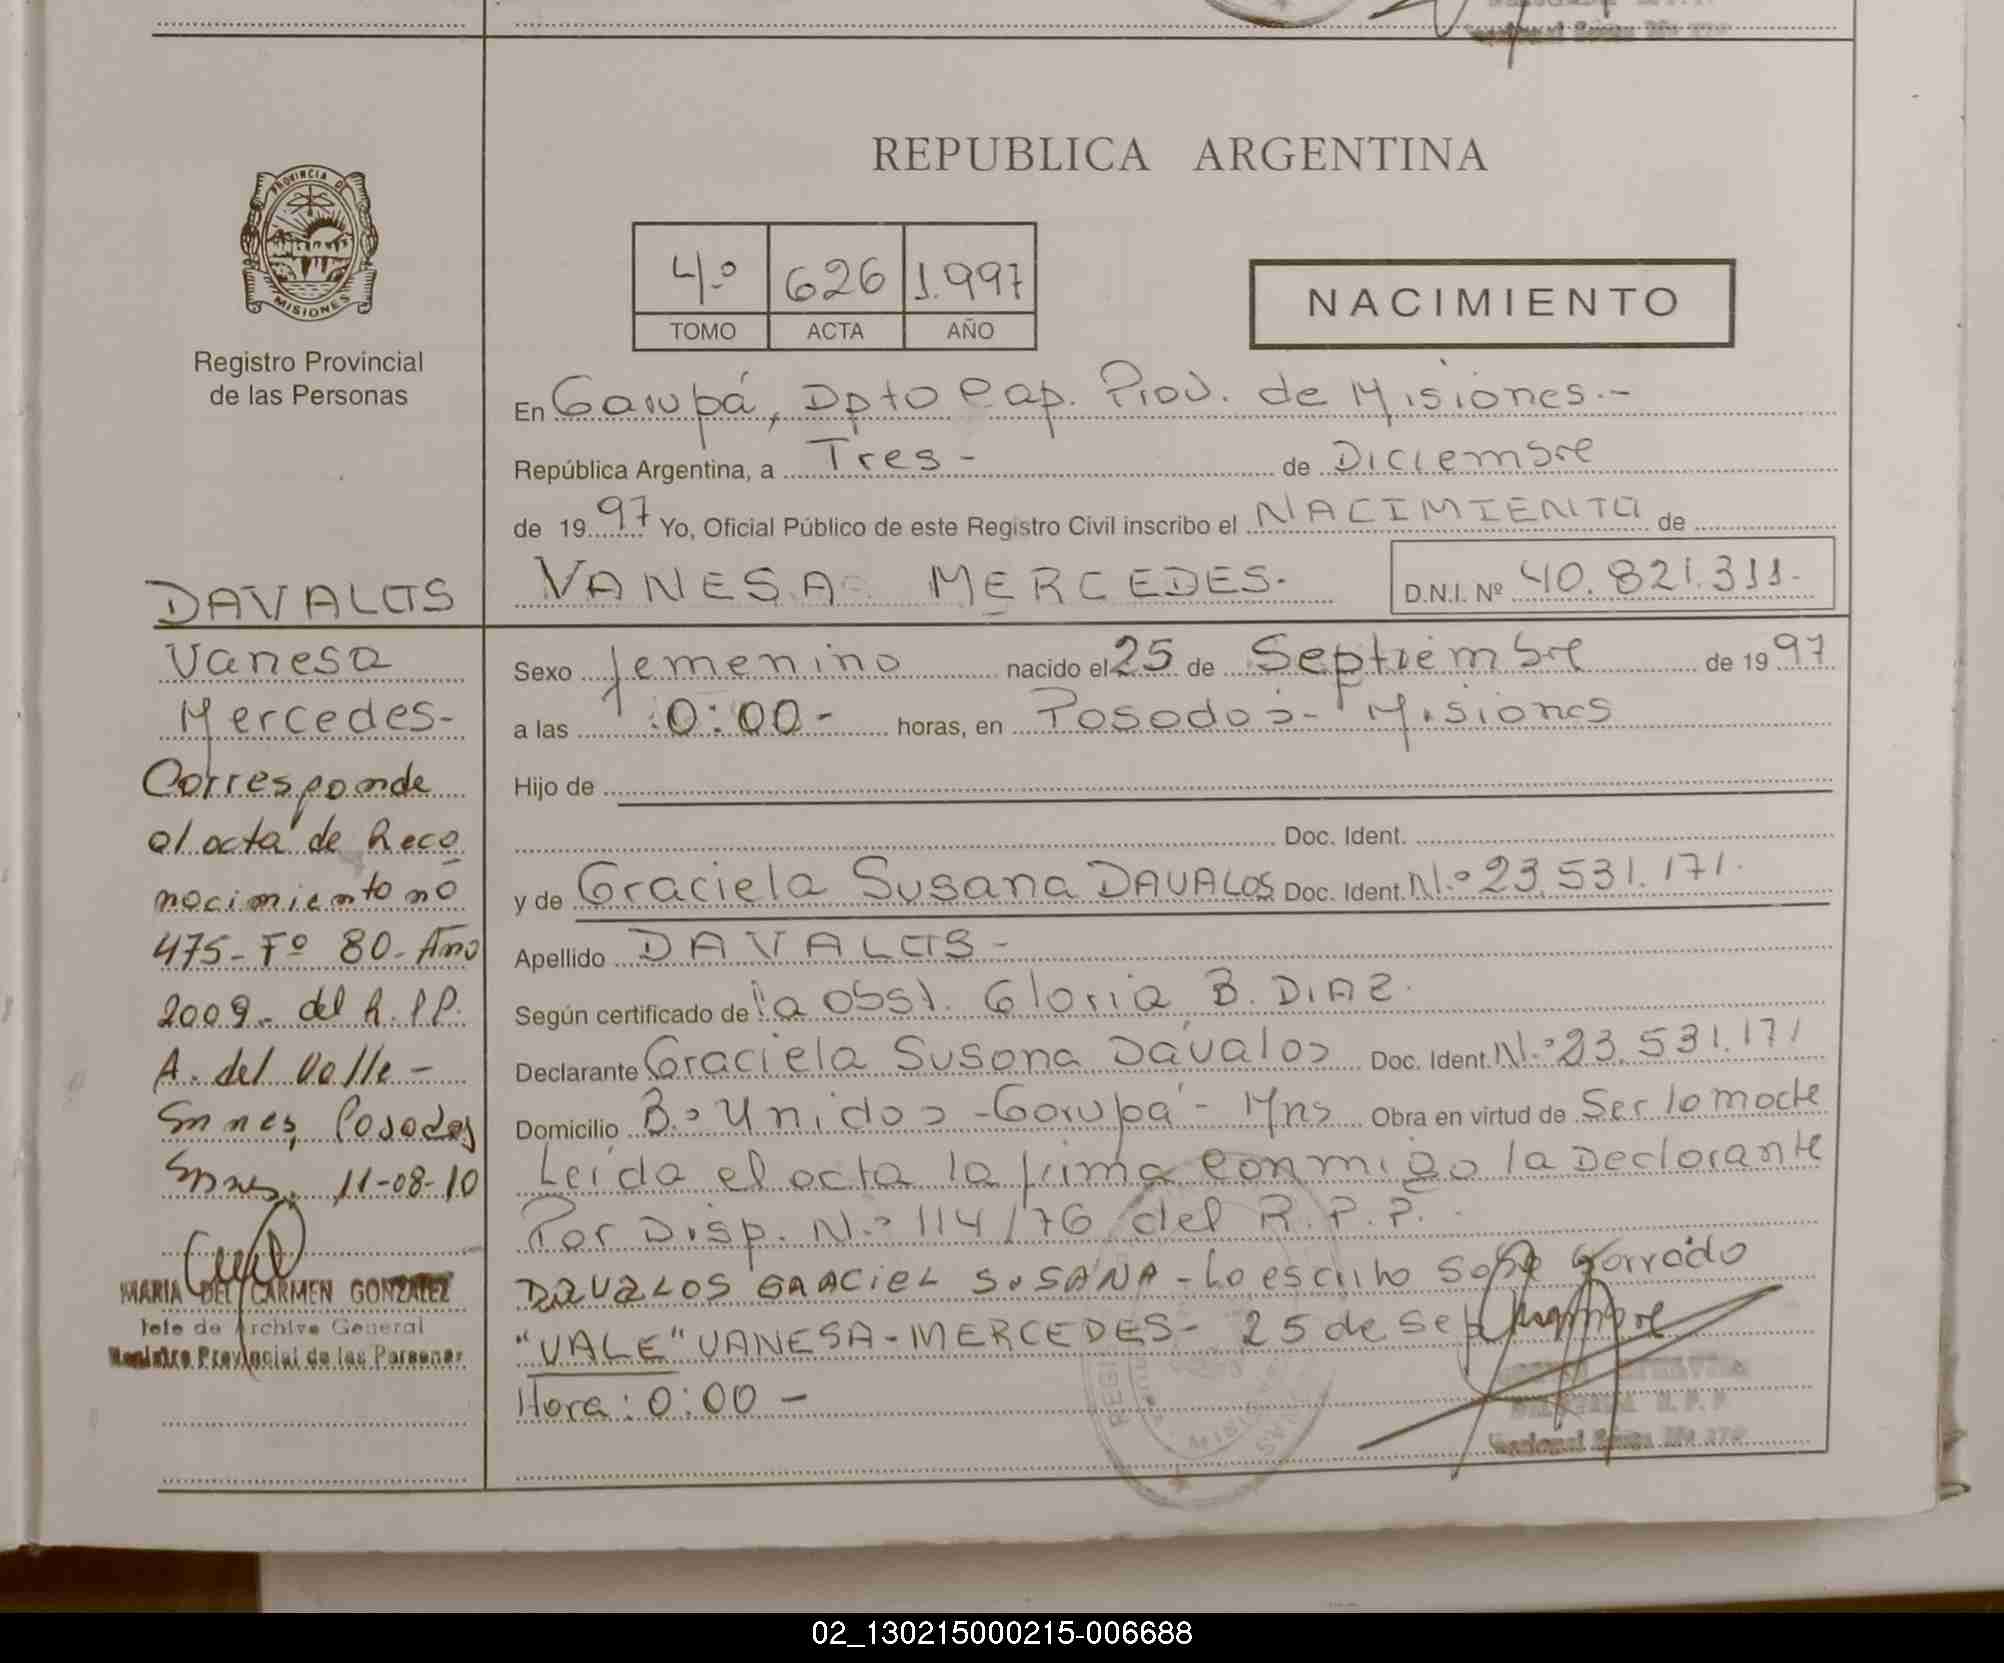 PROVINCIA DE
MISIONES
Registro Provincial
de las Personas
REPUBLICA ARGENTINA
4.º 626 1.997
TOMO ACTA AÑO
NACIMIENTO
En Garupá, Dpto Cap. Prov. de Misiones.-
República Argentina, a Tres - de Diciembre
de 1997 Yo, Oficial Público de este Registro Civil inscribo el NACIMIENTO de
VANESA MERCEDES- D.N.I. Nº 40.821.311-
Sexo femenino nacido el 25 de Septiembre de 1997
a las 0:00- horas, en Posadas- Misiones
Hijo de
Doc. Ident.
y de Graciela Susana DAVALOS Doc. Ident. N.º 23.531.171.
Apellido DAVALOS-
Según certificado de la Obst. Gloria B. DIAZ.
Declarante Graciela Susana Dávalos Doc. Ident. N.º 23.531.171
Domicilio B.º Unidos - Garupá - Mns Obra en virtud de Ser la madre
Leída el acta la firma conmigo la Declarante
Por Disp. N.º 114/76 del R.P.P.
DAVALOS GRACIEL SUSANA - Lo escrito sobre borrado
"VALE" VANESA-MERCEDES- 25 de Septiembre
Hora: 0:00 -
DAVALOS
Vanesa
Mercedes-
Corresponde
al acta de Reco
nocimiento nº
475- Fº 80- Año
2009- del R.P.P.
A. del Valle -
Smnes, Posadas
Mnes, 11-08-10
MARIA DEL CARMEN GONZALEZ
Jefe de Archivo General
Registro Provincial de las Personas
02_130215000215-006688